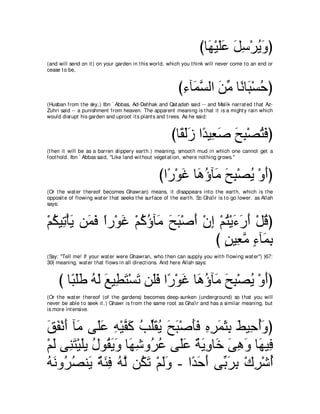 (وَيُرْسِلَ عَلَيْهَا)
(and will send on it) on your garden in this world, which you think will never come to an end or
cease to be,
(حُسْبَانًا مِّنَ السَّمَآءِ)
(Husban from the sky,) Ibn `Abbas, Ad-Dahhak and Qatadah said -- and Malik narrated that Az-
Zuhri said -- a punishment from heaven. The apparent meaning is that it is a mighty rain which
would disrupt his garden and uproot its plants and trees. As he said:
(فَتُصْبِحَ صَعِيدًا زَلَقًا)
(then it will be as a barren slippery earth.) meaning, smooth mud in which one cannot get a
foothold. Ibn `Abbas said, "Like land without vegetation, where nothing grows."
(أَوْ يُصْبِحَ مَآؤُهَا غَوْرًا)
(Or the water thereof becomes Ghawran) means, it disappears into the earth, which is the
opposite of flowing water that seeks the surface of the earth. So Gha'ir is to go lower. as Allah
says:
(قُلْ أَرَءَيْتُمْ إِنْ أَصْبَحَ مَآؤُكُمْ غَوْراً فَمَن يَأْتِيكُمْ
بِمَآءٍ مَّعِينٍ )
(Say: "Tell me! If your water were Ghawran, who then can supply you with flowing water") (67:
30) meaning, water that flows in all directions. And here Allah says:
(أَوْ يُصْبِحَ مَآؤُهَا غَوْرًا فَلَن تَسْتَطِيعَ لَهُ طَلَبًا )
(Or the water thereof (of the gardens) becomes deep-sunken (underground) so that you will
never be able to seek it.) Ghawr is from the same root as Gha'ir and has a similar meaning, but
is more intensive.
(وَأُحِيطَ بِثَمَرِهِ فَأَصْبَحَ يُقَلِّبُ كَفَّيْهِ عَلَى مَآ أَنْفَقَ
فِيهَا وَهِىَ خَاوِيَةٌ عَلَى عُرُوشِهَا وَيَقُولُ يلَيْتَنِى لَمْ
أُشْرِكْ بِرَبِّى أَحَدًا - وَلَمْ تَكُن لَّهُ فِئَةٌ يَنصُرُونَهُ